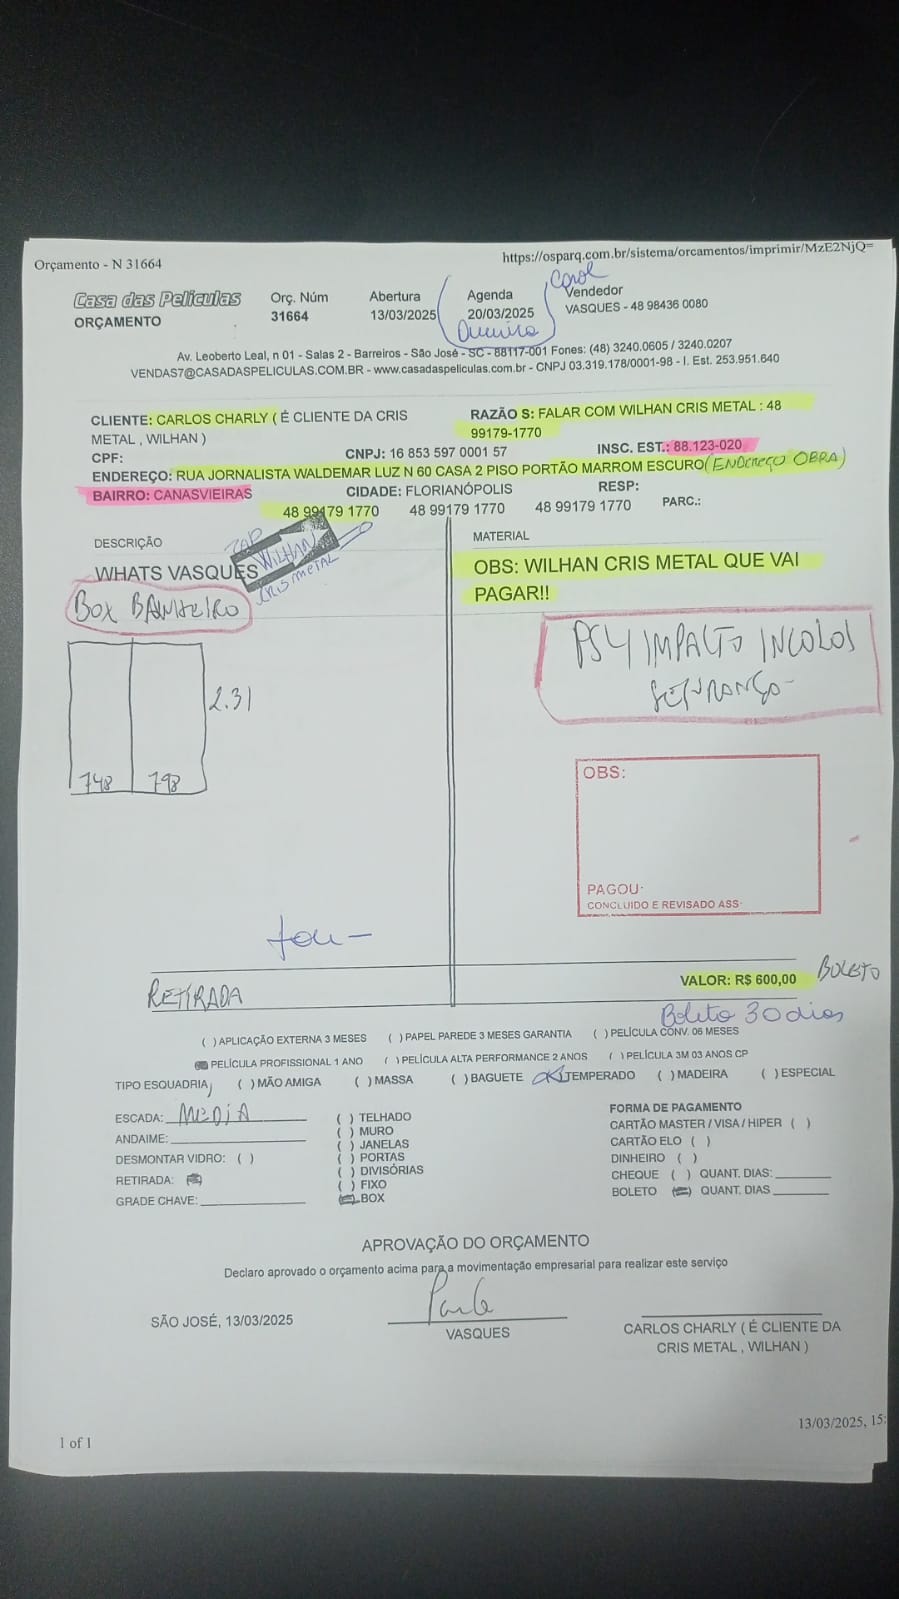 Orçamento - N 31664
https://osparq.com.br/sistema/orcamentos/imprimir/MzE2NjQ=
Casa das Películas
ORÇAMENTO
Orç. Núm
31664
Abertura
13/03/2025
Agenda
20/03/2025
Carol
Vendedor
VASQUES - 48 98436 0080
Av. Leoberto Leal, n 01 - Salas 2 - Barreiros - São José - SC - 88117-001 Fones: (48) 3240.0605 / 3240.0207
VENDAS7@CASADASPELICULAS.COM.BR - www.casadaspeliculas.com.br - CNPJ 03.319.178/0001-98 - I. Est. 253.951.640
CLIENTE: CARLOS CHARLY ( É CLIENTE DA CRIS
METAL , WILHAN )
RAZÃO S: FALAR COM WILHAN CRIS METAL : 48
99179-1770
CPF:
CNPJ: 16 853 597 0001 57
INSC. EST.: 88.123-020
ENDEREÇO: RUA JORNALISTA WALDEMAR LUZ N 60 CASA 2 PISO PORTÃO MARROM ESCURO (ENDEREÇO OBRA)
BAIRRO: CANASVIEIRAS
CIDADE: FLORIANÓPOLIS
RESP:
48 99179 1770 48 99179 1770 48 99179 1770 PARC.:
DESCRIÇÃO
MATERIAL
WHATS VASQUES
ZAP
WILHAN
CRIS METAL
OBS: WILHAN CRIS METAL QUE VAI
PAGAR!!
BOX BANHEIRO
PS4 IMPACTO INCOLOR
SEGURANÇA
2.31
748 798
OBS:
PAGOU:
CONCLUIDO E REVISADO ASS:
RETIRADA
VALOR: R$ 600,00
BOLETO
Boleto 30 dias
( ) APLICAÇÃO EXTERNA 3 MESES ( ) PAPEL PAREDE 3 MESES GARANTIA ( ) PELÍCULA CONV. 06 MESES
PELÍCULA PROFISSIONAL 1 ANO ( ) PELÍCULA ALTA PERFORMANCE 2 ANOS ( ) PELÍCULA 3M 03 ANOS CP
TIPO ESQUADRIA ( ) MÃO AMIGA ( ) MASSA ( ) BAGUETE TEMPERADO ( ) MADEIRA ( ) ESPECIAL
ESCADA: MEDIA
ANDAIME:
DESMONTAR VIDRO: ( )
RETIRADA:
GRADE CHAVE:
( ) TELHADO
( ) MURO
( ) JANELAS
( ) PORTAS
( ) DIVISÓRIAS
( ) FIXO
BOX
FORMA DE PAGAMENTO
CARTÃO MASTER / VISA / HIPER ( )
CARTÃO ELO ( )
DINHEIRO ( )
CHEQUE ( ) QUANT. DIAS:
BOLETO QUANT. DIAS
APROVAÇÃO DO ORÇAMENTO
Declaro aprovado o orçamento acima para a movimentação empresarial para realizar este serviço
SÃO JOSÉ, 13/03/2025
VASQUES
CARLOS CHARLY ( É CLIENTE DA
CRIS METAL , WILHAN )
1 of 1
13/03/2025, 15: